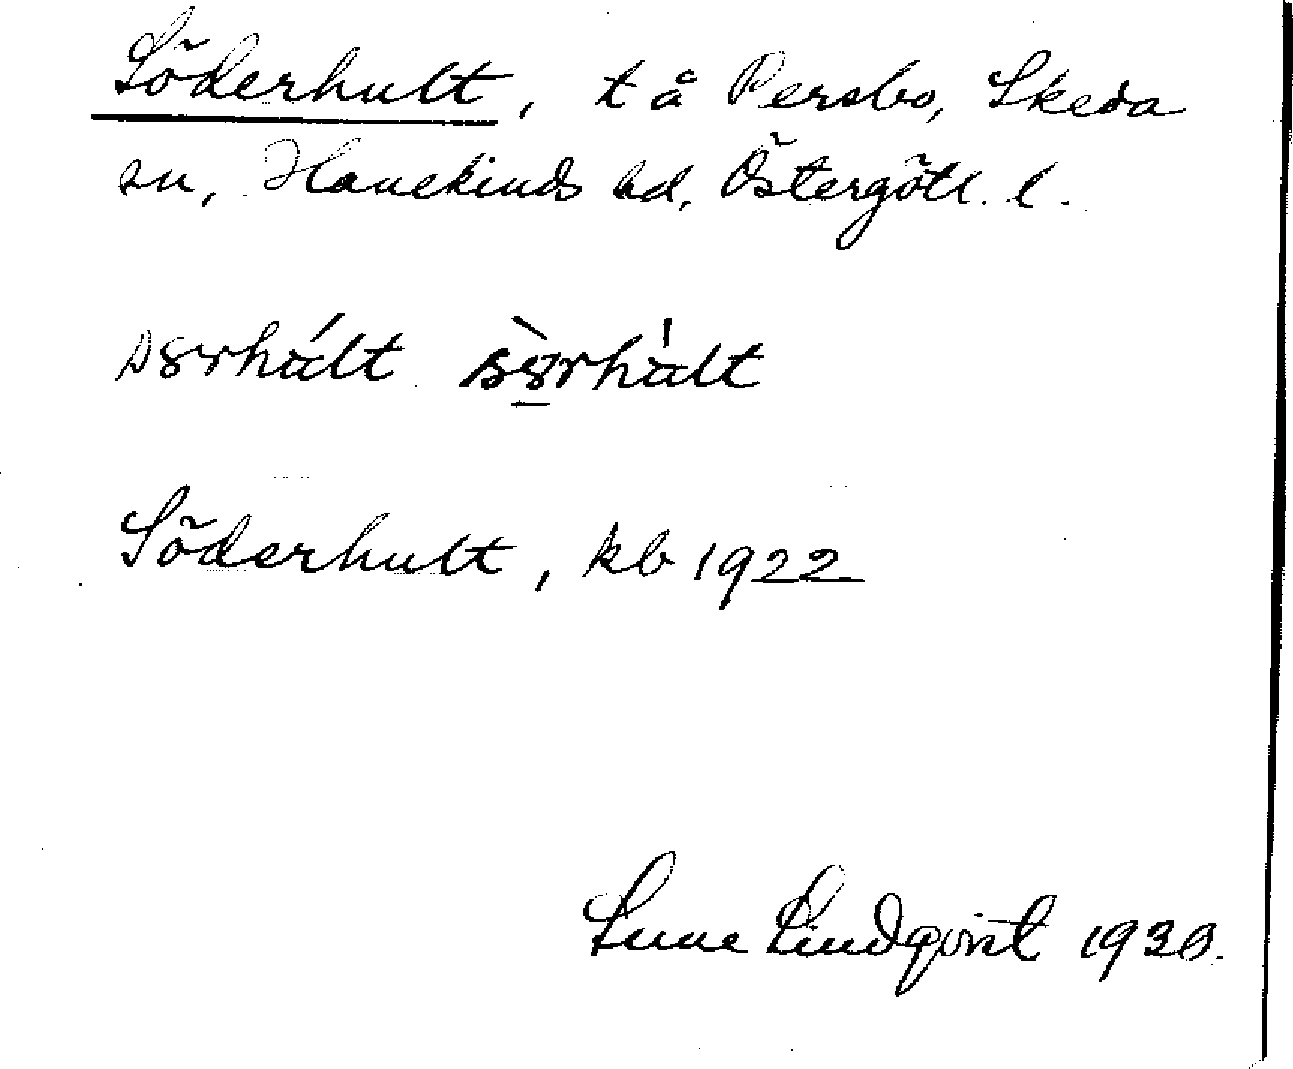 Söderhult, t å Persbo, Skeda
sn, Hanekinds hd, Östergötl. l.
Söderhult, kb 1922
Sune Lindqvist